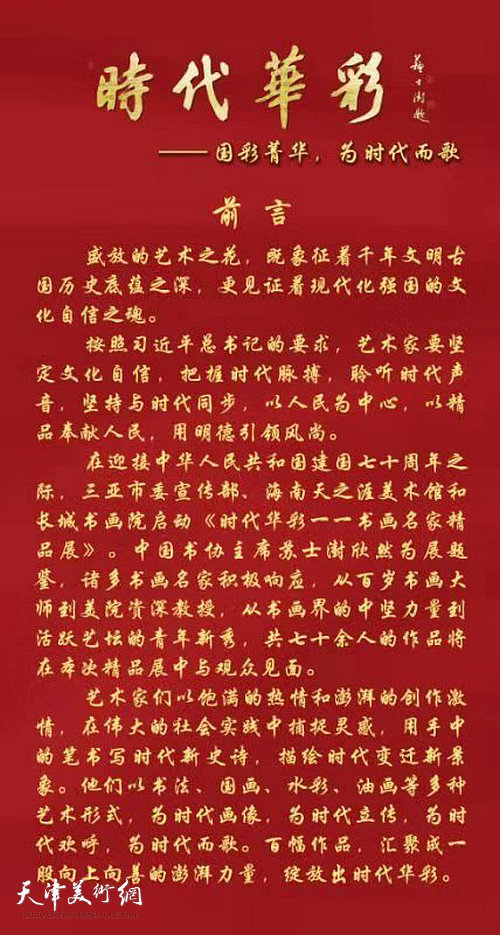 時代華彩
苏士澍题
——国彩菁华，为时代而歌
前言
盛放的艺术之花，既象征着千年文明古
国历史底蕴之深，更见证着现代化强国的文
化自信之魂。
按照习近平总书记的要求，艺术家要坚
定文化自信，把握时代脉搏，聆听时代声
音，坚持与时代同步，以人民为中心，以精
品奉献人民，用明德引领风尚。
在迎接中华人民共和国建国七十周年之
际，三亚市委宣传部、海南天之涯美术馆和
长城书画院启动《时代华彩一一书画名家精
品展》。中国书协主席苏士澍欣然为展题
鉴，诸多书画名家积极响应，从百岁书画大
师到美院资深教授，从书画界的中坚力量到
活跃艺坛的青年新秀，共七十余人的作品将
在本次精品展中与观众见面。
艺术家们以饱满的热情和澎湃的创作激
情，在伟大的社会实践中捕捉灵感，用手中
的笔书写时代新史诗，描绘时代变迁新景
象。他们以书法、国画、水彩、油画等多种
艺术形式，为时代画像，为时代立传，为时
代欢呼，为时代而歌。百幅作品，汇聚成一
股向上向善的澎湃力量，绽放出时代华彩。
天津美術網
www.022meishu.com